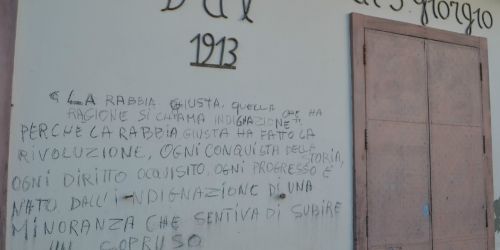 Bar di S giorgio
1913
“LA RABBIA GIUSTA, QUELLA CHE HA
RAGIONE SI CHIAMA INDIGNAZIONE”
PERCHE LA RABBIA GIUSTA HA FATTO LA
RIVOLUZIONE, OGNI CONQUISTA DELLA STORIA,
OGNI DIRITTO ACQUISITO, OGNI PROGRESSO È
NATO DALL'INDIGNAZIONE DI UNA
MINORANZA CHE SENTIVA DI SUBIRE
UN SOPRUSO